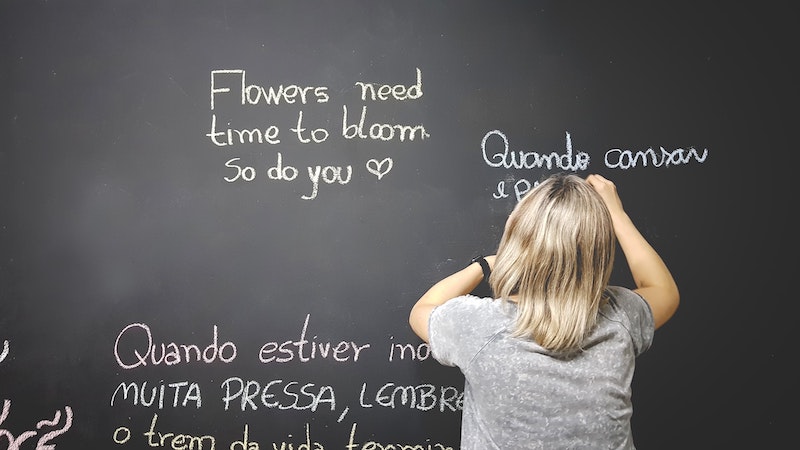 Flowers need
time to bloom
so do you ♡
Quando cansar
Quando estiver
MUITA PRESSA, LEMBRE
o trem da vida